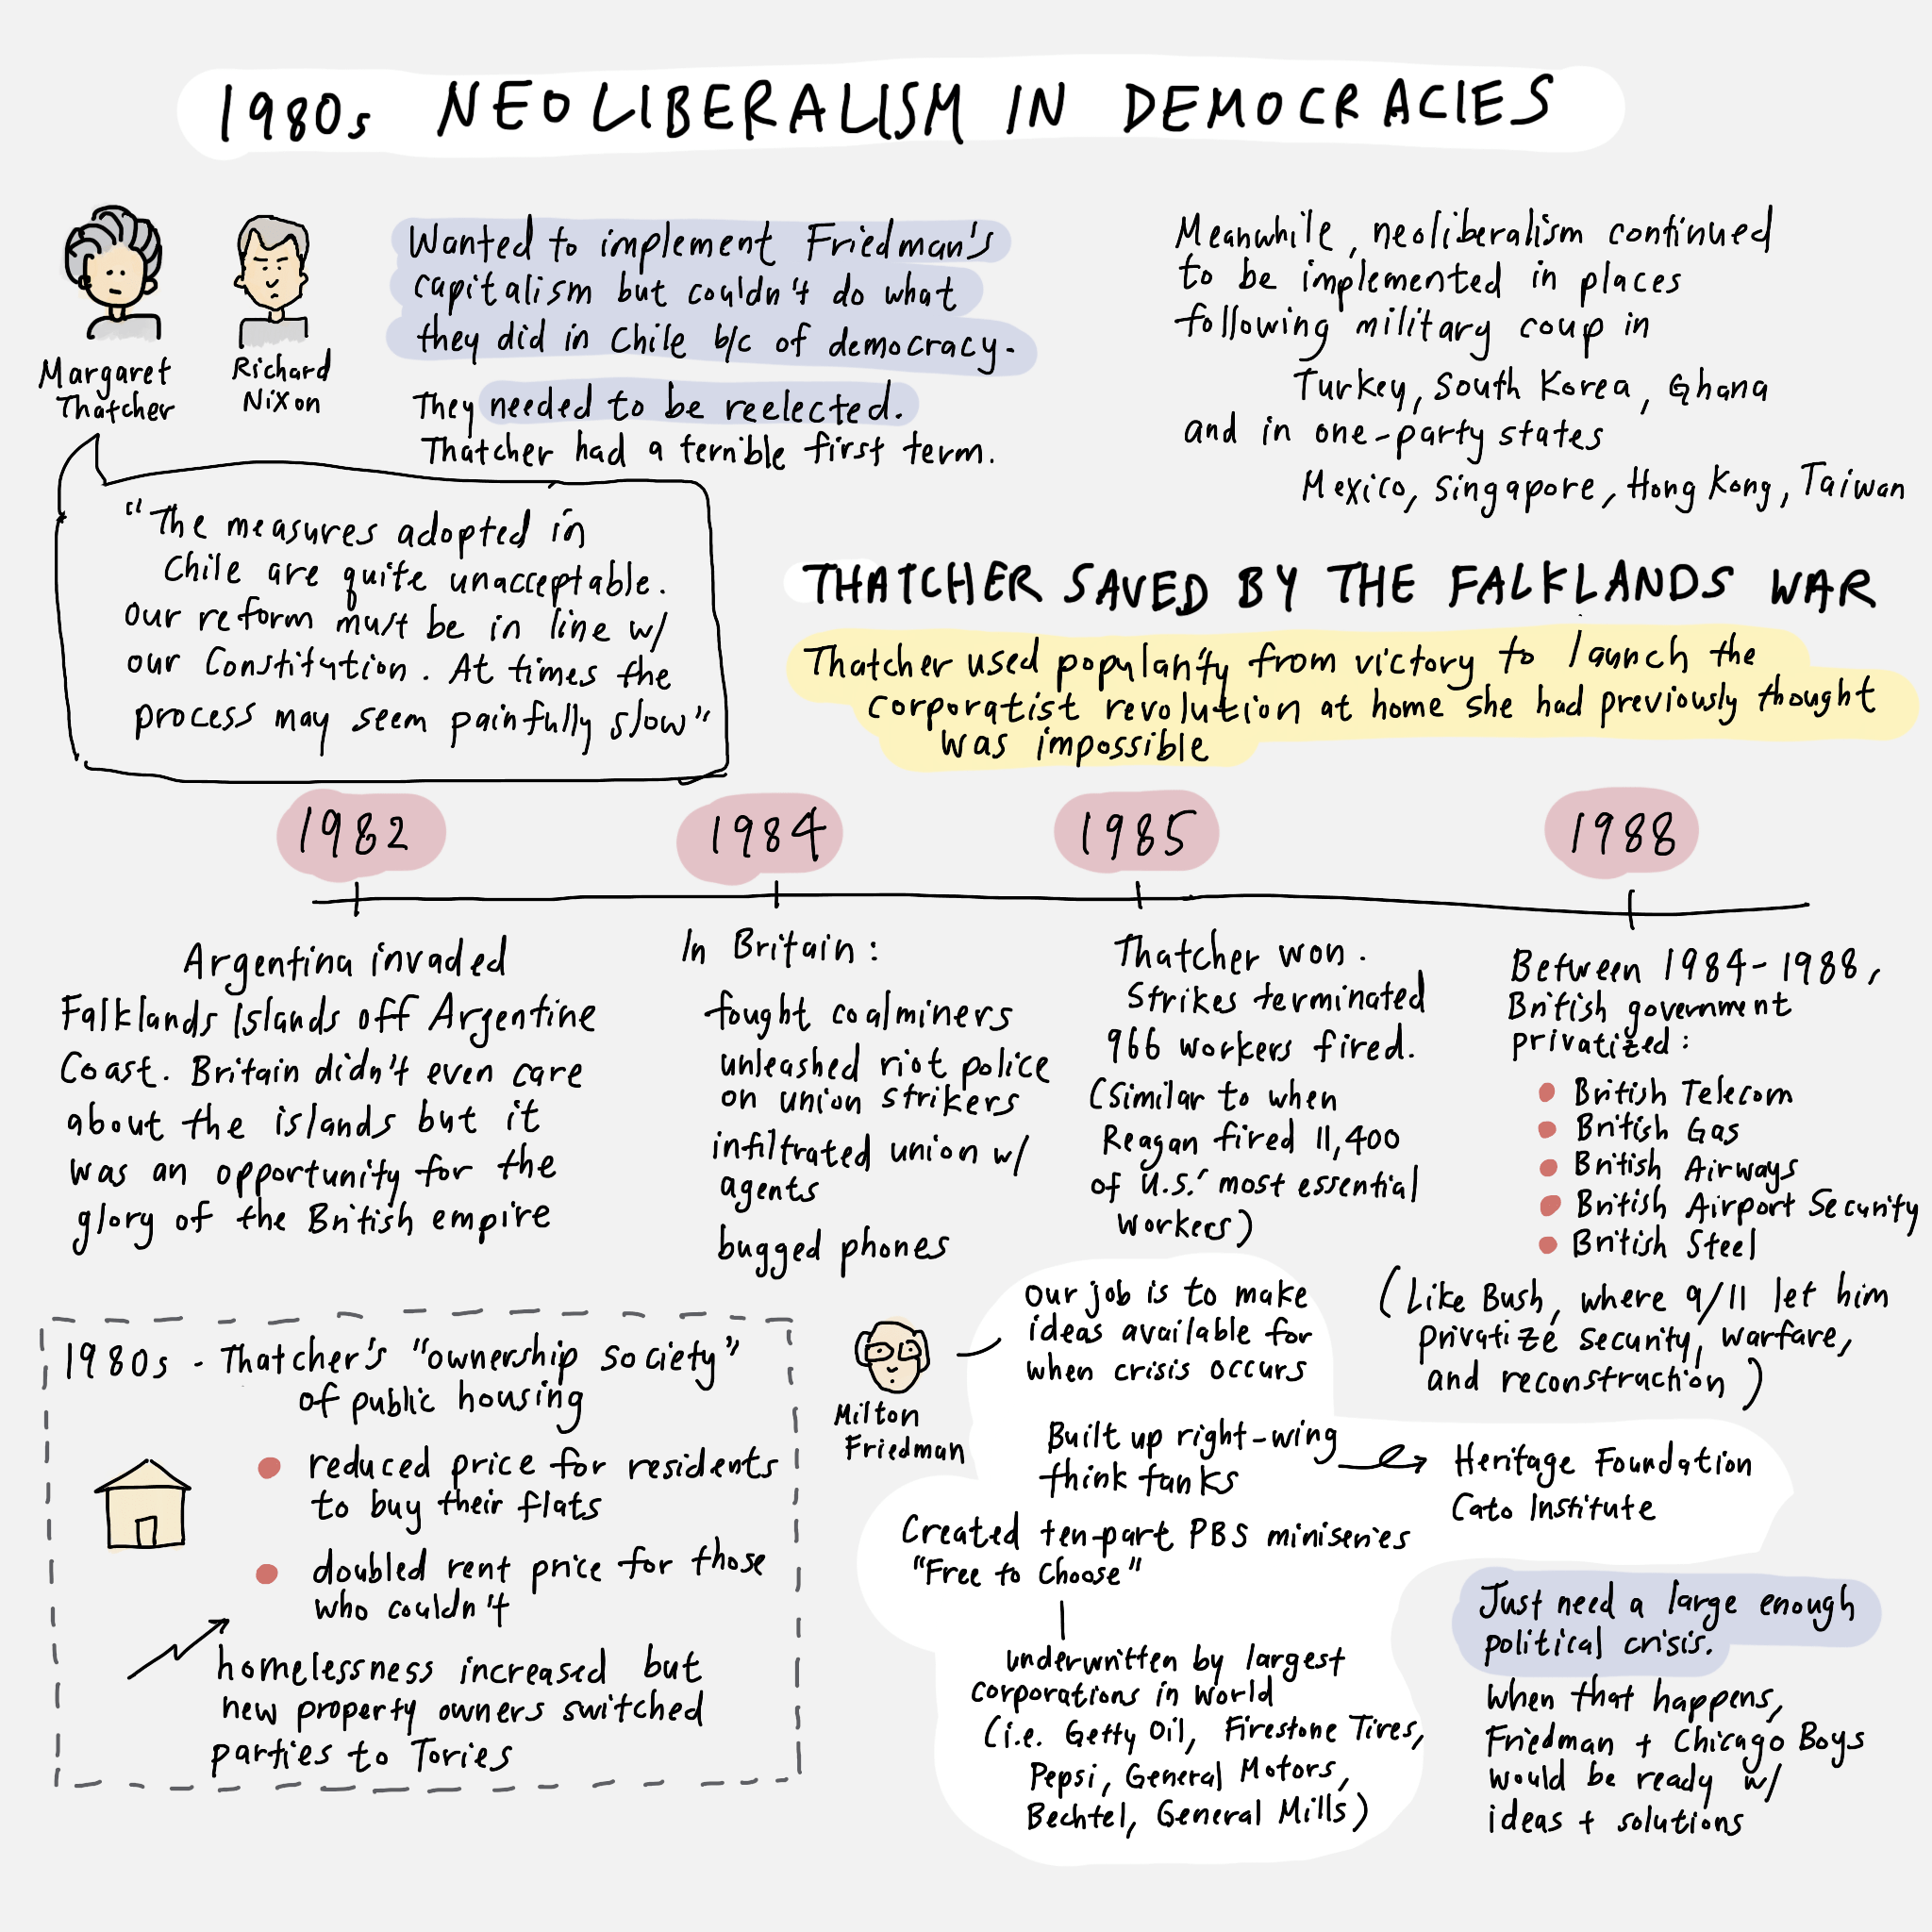 1980s NEOLIBERALISM IN DEMOCRACIES
Margaret
Thatcher
Richard
Nixon
Wanted to implement Friedman's
capitalism but couldn't do what
they did in Chile b/c of democracy.
They needed to be reelected.
Thatcher had a terrible first term.
"The measures adopted in
Chile are quite unacceptable.
Our reform must be in line w/
our Constitution. At times the
process may seem painfully slow"
Meanwhile, neoliberalism continued
to be implemented in places
following military coup in
Turkey, South Korea, Ghana
and in one-party states
Mexico, Singapore, Hong Kong, Taiwan
THATCHER SAVED BY THE FALKLANDS WAR
Thatcher used popularity from victory to launch the
corporatist revolution at home she had previously thought
was impossible
1982
Argentina invaded
Falklands Islands off Argentine
Coast. Britain didn't even care
about the islands but it
was an opportunity for the
glory of the British empire
1984
In Britain:
fought coalminers
unleashed riot police
on union strikers
infiltrated union w/
agents
bugged phones
1985
Thatcher won.
Strikes terminated
966 workers fired.
(Similar to when
Reagan fired 11,400
of U.S.' most essential
workers)
1988
Between 1984-1988,
British government
privatized:
British Telecom
British Gas
British Airways
British Airport Security
British Steel
(Like Bush, where 9/11 let him
privatize security, warfare,
and reconstruction)
1980s - Thatcher's "ownership society"
of public housing
reduced price for residents
to buy their flats
doubled rent price for those
who couldn't
homelessness increased but
new property owners switched
parties to Tories
Milton
Friedman
Our job is to make
ideas available for
when crisis occurs
Built up right-wing
think tanks
Heritage Foundation
Cato Institute
Created ten-part PBS miniseries
"Free to Choose"
underwritten by largest
corporations in world
(i.e. Getty Oil, Firestone Tires,
Pepsi, General Motors,
Bechtel, General Mills)
Just need a large enough
political crisis.
When that happens,
Friedman + Chicago Boys
would be ready w/
ideas + solutions